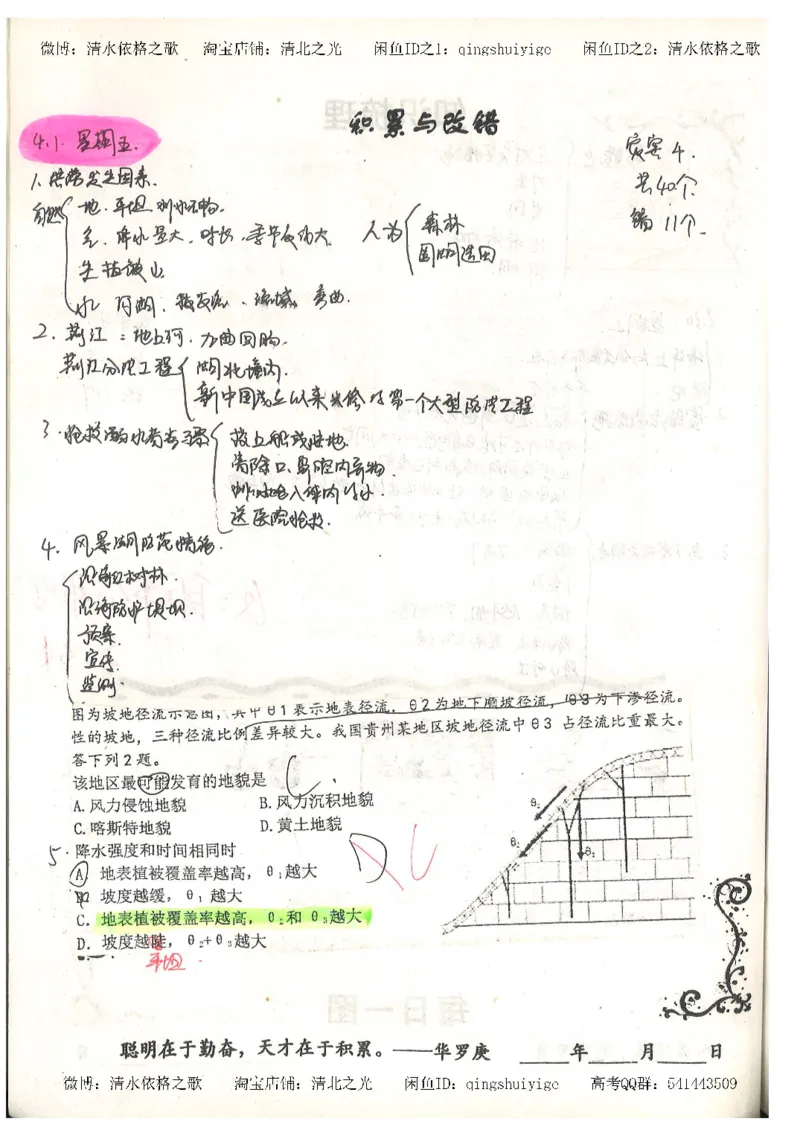 微博：清水依格之歌 淘宝店铺：清北之光 闲鱼ID之1：qingshuiyige 闲鱼ID之2：清水依格之歌
积累与改错
4.1. 星期五.
灾害 4.
共40个.
编 11个.
1. 洪涝发生因素.
自然 地. 平坦
气. 降水量大. 时长. 季节变动大.
生 植被少
水 河湖. 流域. 弯曲.
人为 森林
围湖造田
2. 荆江：地上河. 九曲回肠.
荆江分洪工程 湖北境内.
新中国成立以来兴修的第一个大型防洪工程
3. 抢救溺水者步骤 救上船或陆地.
清除口、鼻腔内异物.
送医院抢救.
4. 风暴潮防范措施.
沿海红树林.
沿海防护堤坝.
预案.
宣传.
监测.
图为坡地径流示意图，其中θ1表示地表径流，θ2为地下顺坡径流，θ3为下渗径流。
性的坡地，三种径流比例差异较大。我国贵州某地区坡地径流中θ3 占径流比重最大。
答下列2题。
该地区最可能发育的地貌是 C.
A.风力侵蚀地貌 B.风力沉积地貌
C.喀斯特地貌 D.黄土地貌
5. 降水强度和时间相同时 D C
A 地表植被覆盖率越高，θ₁越大
B 坡度越缓，θ₁越大
C. 地表植被覆盖率越高，θ₂和θ₃越大
D. 坡度越陡，θ₂+θ₃越大
平坦.
θ₂
θ₁
θ₃
聪明在于勤奋，天才在于积累。——华罗庚 ____年____月____日
微博：清水依格之歌 淘宝店铺：清北之光 闲鱼ID：qingshuiyige 高考QQ群：541443509